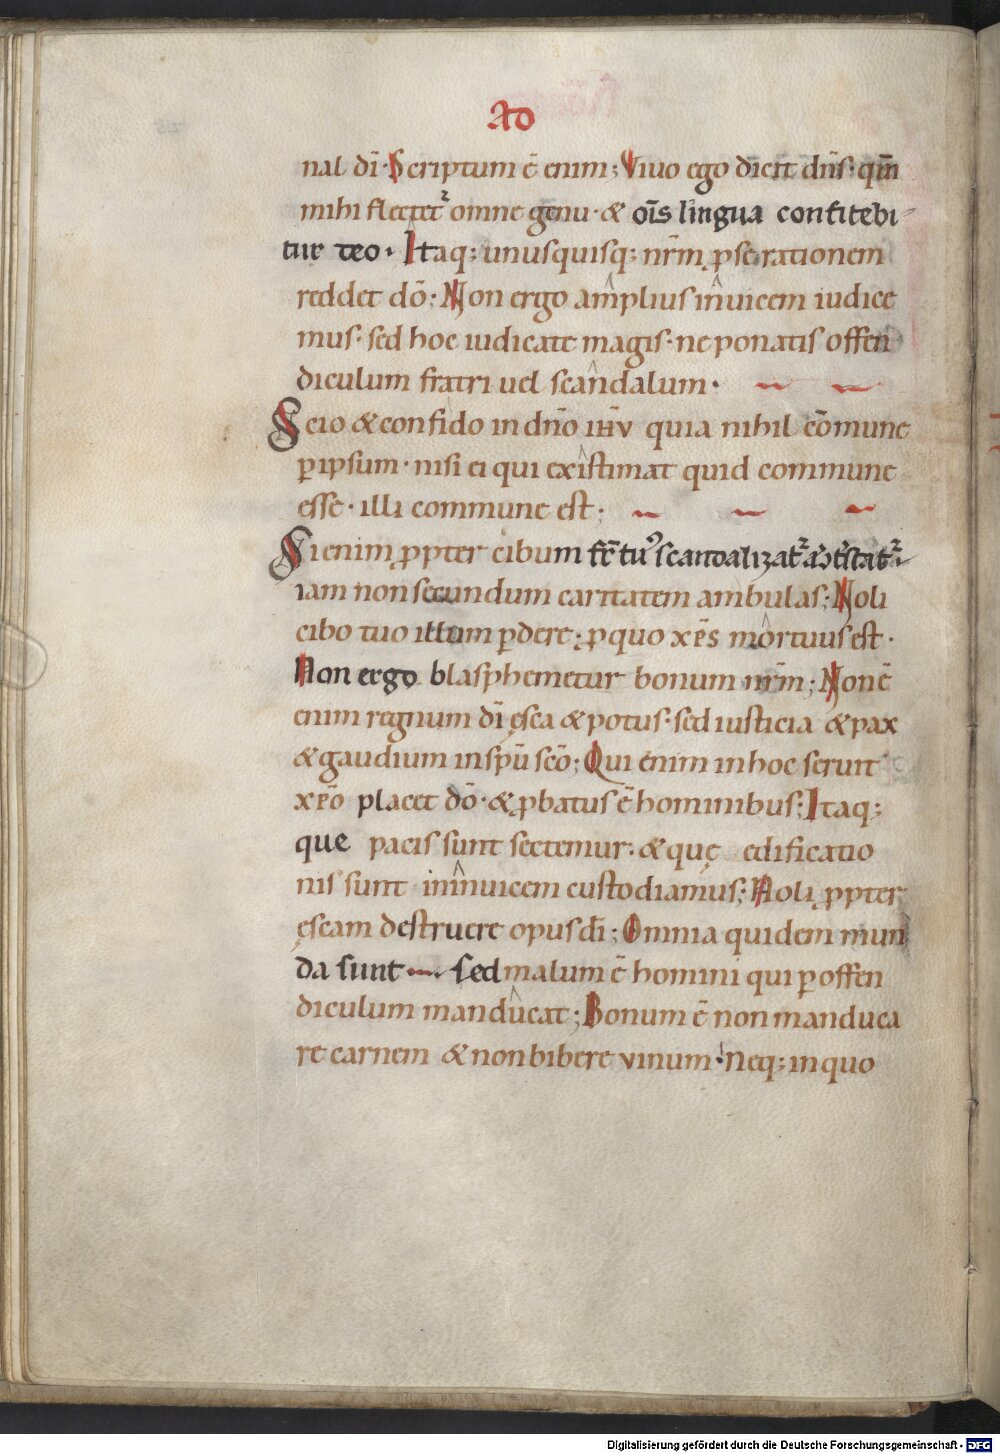 AD
nal dī· Scriptum ē enim; Viuo ego dicit dn̄s· qm̄
mihi flectet᷑ omne genu· & om̄s lingua confitebi-
tur deo· Itaq; unusquisq; nr̄m ꝓ se rationem
reddet dō; Non ergo amplius inuicem iudice
mus· sed hoc iudicate magis· ne ponatis offen
diculum fratri uel scandalum·
Scio & confido in dn̄o ihv̄ quia nihil cōmune
ꝑ ipsum· nisi ei qui existimat quid commune
esse· illi commune est;
Si enim ꝓpter cibum fr̄ tuꝰ scandalizat᷑
iam non secundum caritatem ambulas; Noli
cibo tuo illum ꝑdere; ꝓ quo xp̄s mortuus est·
Non ergo blasphemetur bonum nr̄m; Non ē
enim regnum dī ęsca & potus· sed iusticia & pax
& gaudium in spū scō; Qui enim in hoc seruit
xp̄o placet dō· & ꝓbatus ē hominibus; Itaq;
que pacis sunt sectemur· & quę edificatio
nis sunt in inuicem custodiamus; Noli ꝓpter
ęscam destruere opus dī; Omnia quidem mun
da sunt sed malum ē homini qui ꝑ offen
diculum manducat; Bonum ē non manduca
re carnem & non bibere vinum· Neq; in quo
Digitalisierung gefördert durch die Deutsche Forschungsgemeinschaft - DFG